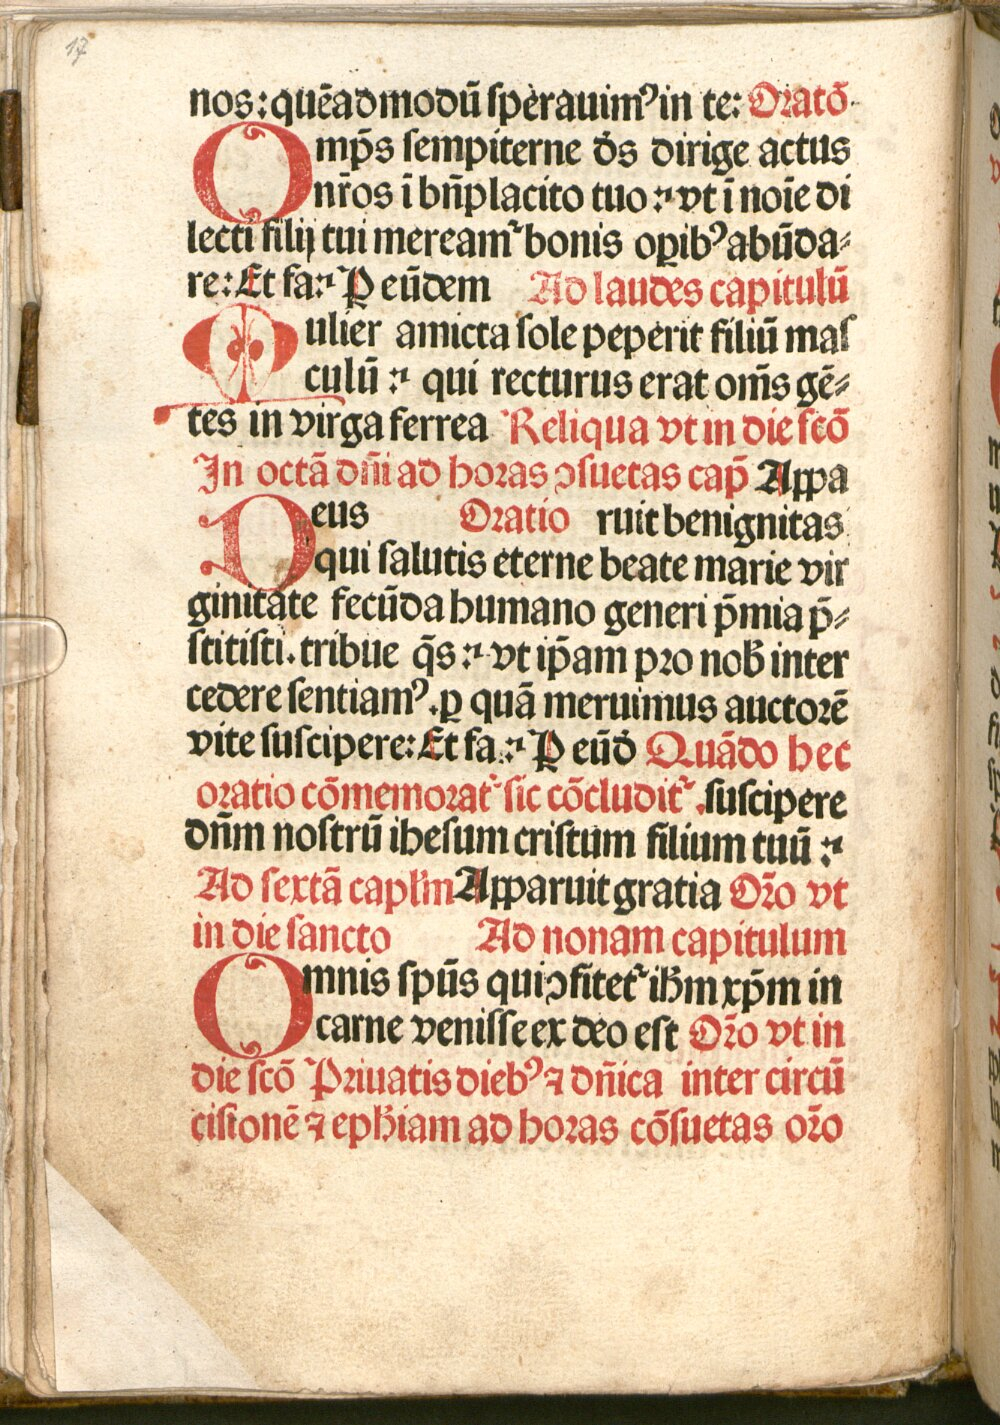 17
nos: quēadmodū sperauimꝰ in te: Oratō
Omp̄s sempiterne d̄s dirige actus
nr̄os ī bn̄placito tuo ⁊ vt ī noīe di
lecti filij tui mereamᷣ bonis oꝑibꝰ abūda⸗
re: Et fa: ⁊ P eūdem Ad laudes capitulū
Mulier amicta sole peperit filiū mas
culū ⁊ qui recturus erat om̄s gē⸗
tes in virga ferrea Reliqua vt in die scō
In octā dn̄i ad horas ꝯsuetas cap̄ Appa
Deus Oratio ruit benignitas
qui salutis eterne beate marie vir
ginitate fecūda humano generi p̄mia p̄⸗
stitisti. tribue q̄s ⁊ vt ip̄am pro nob̄ inter
cedere sentiamꝰ. ꝑ quā meruimus auctorē
vite suscipere: Et fa. ⁊ P eūd̄ Quādo hec
oratio cōmemoratᷣ sic cōcluditᷣ. suscipere
dn̄m nostrū ihesum cristum filium tuū ⁊
Ad sextā capl̄m Apparuit gratia Or̄o vt
in die sancto Ad nonam capitulum
Omnis sp̄us qui ꝯfitetᷣ ih̄m xp̄m in
carne venisse ex deo est Or̄o vt in
die scō Priuatis diebꝰ ⁊ dn̄ica inter circū
cisionē ⁊ eph̄iam ad horas cōsuetas or̄o